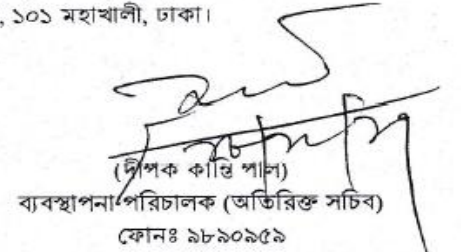 , ১০১ মহাখালী, ঢাকা।
(দীপক কান্তি পাল)
ব্যবস্থাপনা পরিচালক (অতিরিক্ত সচিব)
ফোনঃ ৯৮৯০৯৫৯